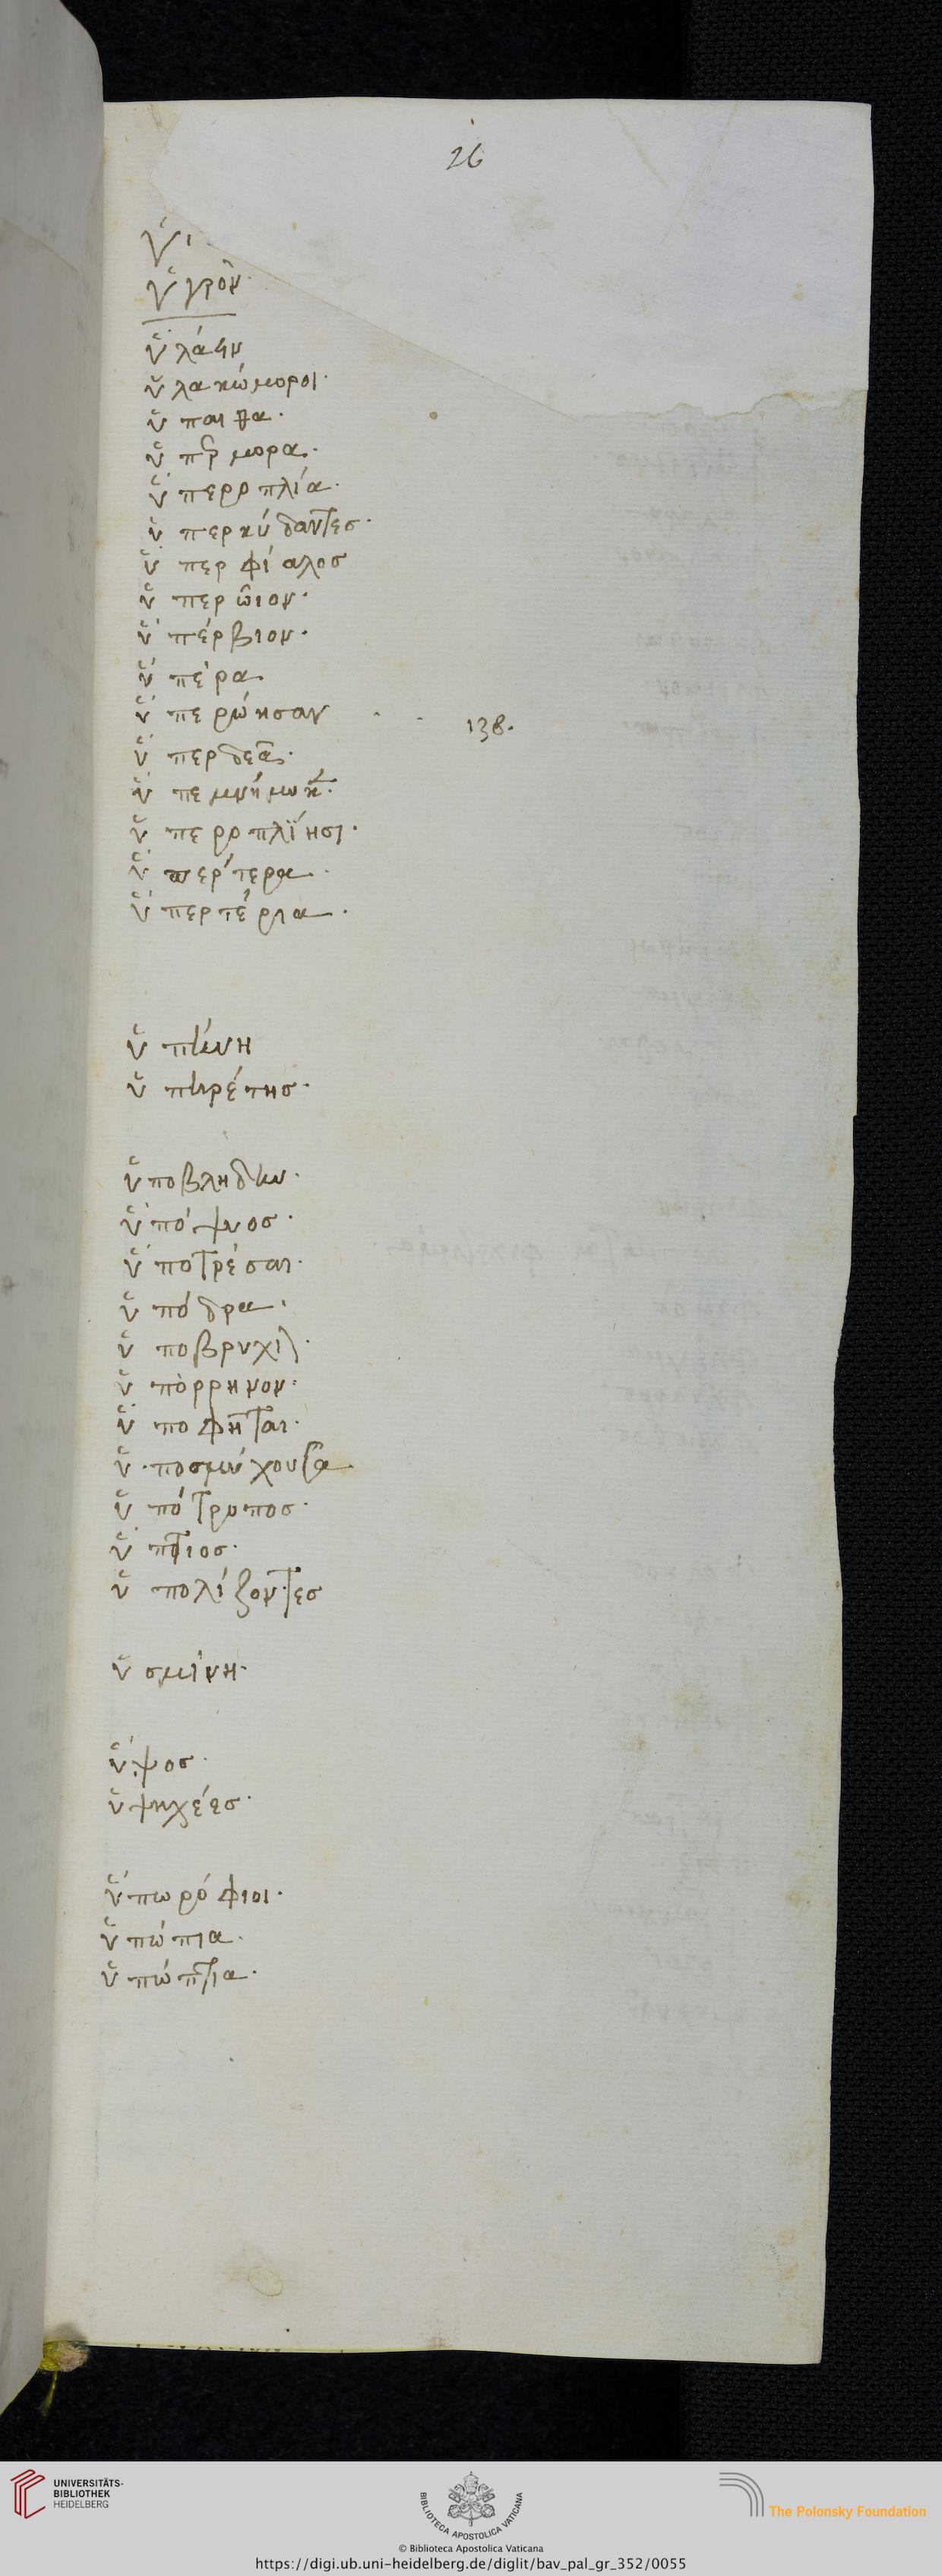 26
ὑ
ὑγρὸν
ὑλάειν
ὑλακώμοροι.
ὑπαιθα.
ὑπερμορα.
ὑπεροπλία.
ὑπερκύδαντες.
ὑπερφίαλοσ
ὑπερώιον.
ὑπέρβιον.
ὑπέρα.
ὑπερώησαν 138.
ὑπερδεα.
ὑπεμνήμυκε.
ὑπεροπλίησι.
ὑπέρτερα.
ὑπερτέρια.
ὑπήνη
ὑπηρέτησ.
ὑποβλήδην.
ὑπόψιοσ.
ὑποτρέσαι.
ὑπόδρα.
ὑποβρυχ
ὑπόρρηνον.
ὑποφῆται.
ὑποσμύχουσα.
ὑπότροποσ.
ὑπολίζοντεσ
ὑσμίνη.
ὕψοσ.
ὑψηχέεσ.
ὑπωρόφιοι.
ὑπώπια.
UNIVERSITÄTS-
BIBLIOTHEK
HEIDELBERG
BIBLIOTECA APOSTOLICA VATICANA
The Polonsky Foundation
© Biblioteca Apostolica Vaticana
https://digi.ub.uni-heidelberg.de/diglit/bav_pal_gr_352/0055